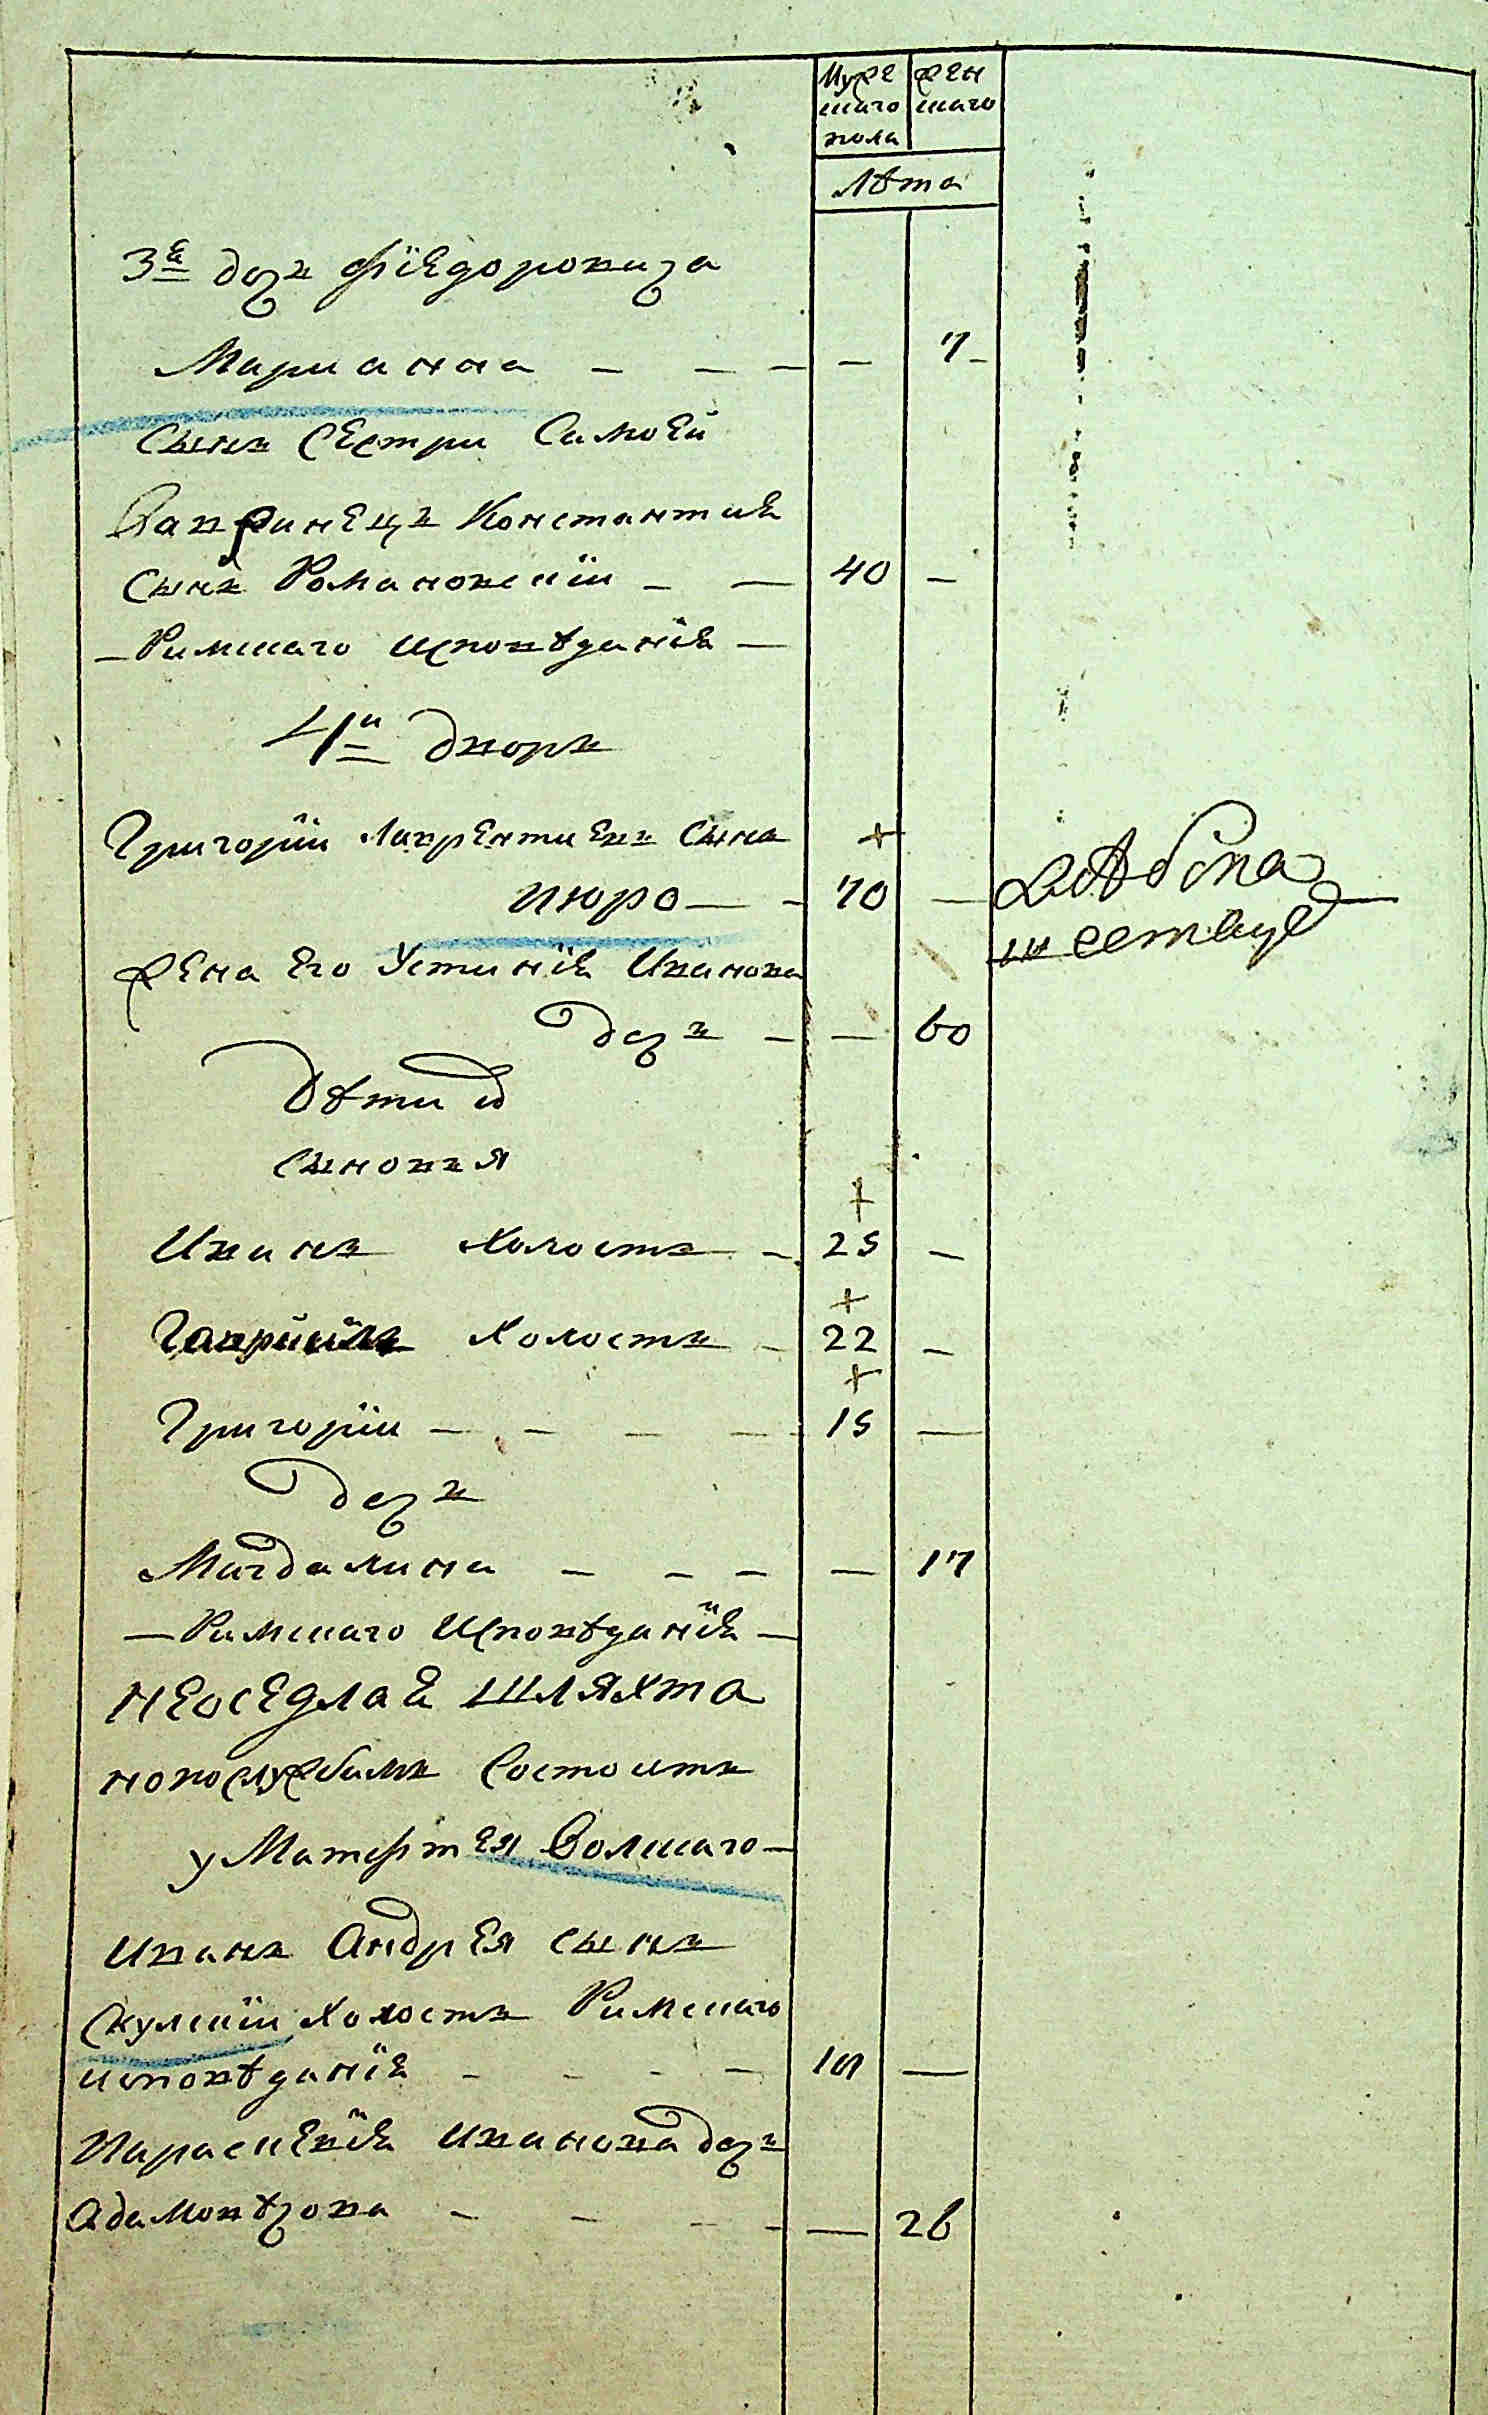 Муже женскаго
скаго
пола
Лѣта
3я дочъ Фiедоровича
Марианна — — — — 7
Сынъ сестри Самоей
Вавринецъ Константия
Сынъ Романовскiи — — 40 —
— Римскаго исповѣданiя —
4и дворъ
Григорiи Лаврентиевъ сынъ +
Пюро — — 70 —
Жена его Устинiя Иванова
дочъ — — 60
Дѣти их
сыновья
+
Иванъ холостъ — 25 —
+
Гаврiилъ холостъ — 22 —
+
Григорiи — — — — 15 —
дочъ
Магдалина — — — — 17
— Римскаго исповѣданiя —
неоседлая шляхта
новослужбамъ состоитъ
у Матфтея Волскаго —
Иванъ Андрея сынъ
Скулскiи холостъ Римскаго
исповѣданiя — — — — 19 —
Параскевiя Иванова дочъ
Адамовѣчова — — — — — 26